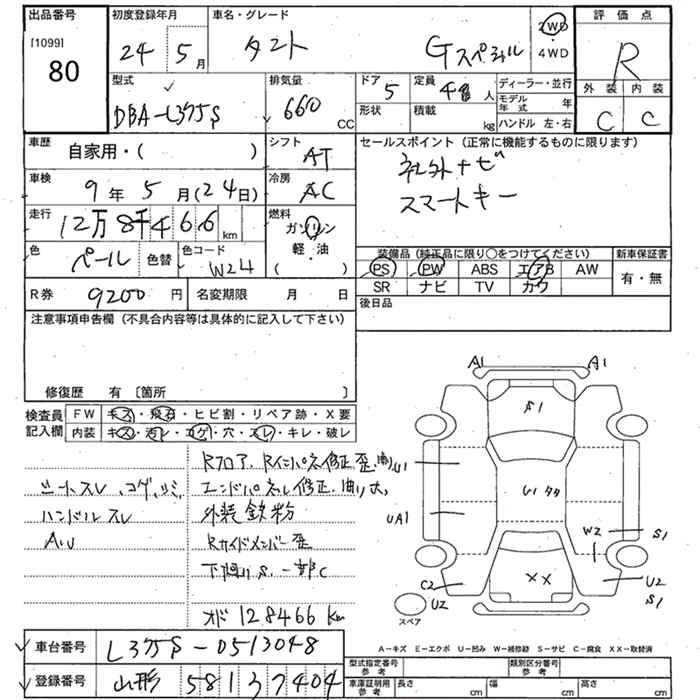 出品番号
[1099]
80
初度登録年月
24 5月
車名・グレード
タント Gスペシャル
2WD
4WD
評価点
R
外装 内装
C C
型式
DBA-L375S
排気量
660 CC
ドア 5
形状
定員 4人
積載 kg
ディーラー・並行
モデル年式 年
ハンドル 左・右
車歴
自家用・( )
シフト
AT
セールスポイント (正常に機能するものに限ります)
社外ナビ
スマートキー
車検
9年 5月(24日)
冷房
AC
走行
12万8千466km
燃料
ガソリン
軽・油
( )
色
パール
色替
色コード
W24
装備品(純正品に限り〇をつけてください)
新車保証書
PS PW ABS エアB AW
SR ナビ TV カワ
有・無
R券 9200円
名変期限 月 日
後日品
注意事項申告欄(不具合内容等は具体的に記入して下さい)
修復歴 有〔箇所 〕
検査員記入欄
FW キズ・飛石・ヒビ割・リペア跡・X要
内装 キズ・汚レ・コゲ・穴・スレ・キレ・破レ
シートスレ、コゲ、シミ
ハンドルスレ
Rフロア、Rインパネ修正、歪
エンドパネル修正
外装鉄粉
Rサイドメンバー歪
下廻りS、一部C
オド 128466 km
A1 A1
S1
U1
G1
UA1
W2 S1
XX
C2 U2
U2 S1
スペア
A-キズ E-エクボ U-凹み W-補修跡 S-サビ C-腐食 XX-取替済
車台番号 L375S-0513048
登録番号 山形 581 ス 7404
型式指定番号 参考
類別区分番号 参考
車庫証明用 参考
長さ cm 幅 cm 高さ cm